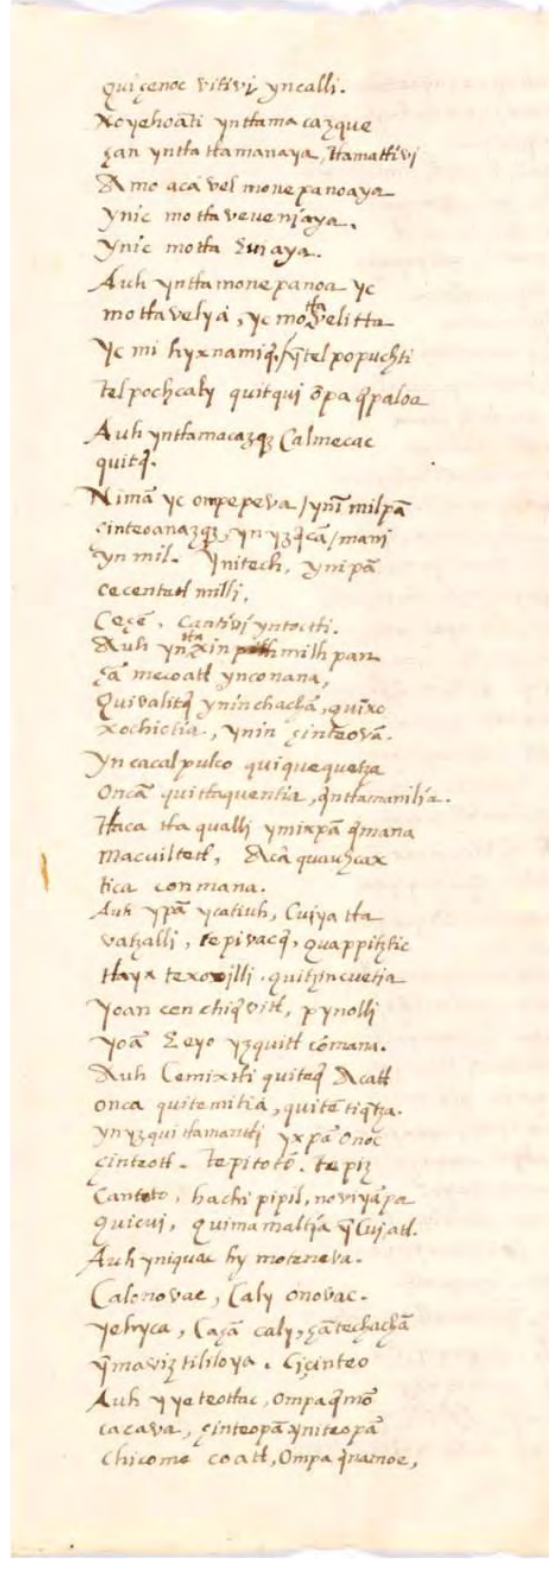 quiçenoc vitivi yncalli.
Xoyehoãti yntlamacazque
çan yntla tlamanaya, tlamattivi
Amo aca vel monepanoaya
ynic motlaveuenjaya.
ynic motla
Auh yntlamonepanoa yc
motlavelya, yc motlavelitta
yc mihyxnamiq̃. / yn telpopuchti
telpochcaly quitqui õpa q̃paloa
Auh yntlamacazq̃ Calmecac
quitq̃.
Nimã yc ompepeva / ynĩ milpã
cinteoanazq̃, yn yzq̃cã / mani
yn mil. ynitech, ynipã
cecentetl milli,
Ceçẽ. cantivi yntoctli.
Auh yntlaxin milhpan
çã mecoatl ynconana,
Quivalitq̃ yninchachã, quixo
xochiotia, ynin çinteovã.
yn cacalpulco quiquequetza
Oncã quitlaquentia, q̃ntlamanilia.
Tlaca tlaqualli ymixpã q̃mana
macuiltetl, Acã quauhcax
tica conmana.
Auh ypã ycatiuh, Cuiya tla
vatzalli, tepivacq̃, quappitztic
tlayx texovilli. quitzincuetia
yoan cen chiq̃vitl, pynolli
yoã Eeyo yzquitl cõmana.
Auh Cemixtli quiteq̃ Acatl
onca quitemitia, quitẽtiq̃tza.
yn yzquitlamantli yxpã onoc
çinteotl. tepitotõ. tepiz
Cantoto, hachi pipil, noviyãpa
quicui, quimamaltia yn Cujatl.
Auh yniquac hy moteneva.
Calonovac, Caly onovac.
yehyca, Caçã caly, çãtechachã
yn maviztililoya. Ciçinteo
Auh yyeteotlac, ompaq̃mõ
cacava, çinteopã yniteopã
chicome coatl, Ompa q̃namoe,